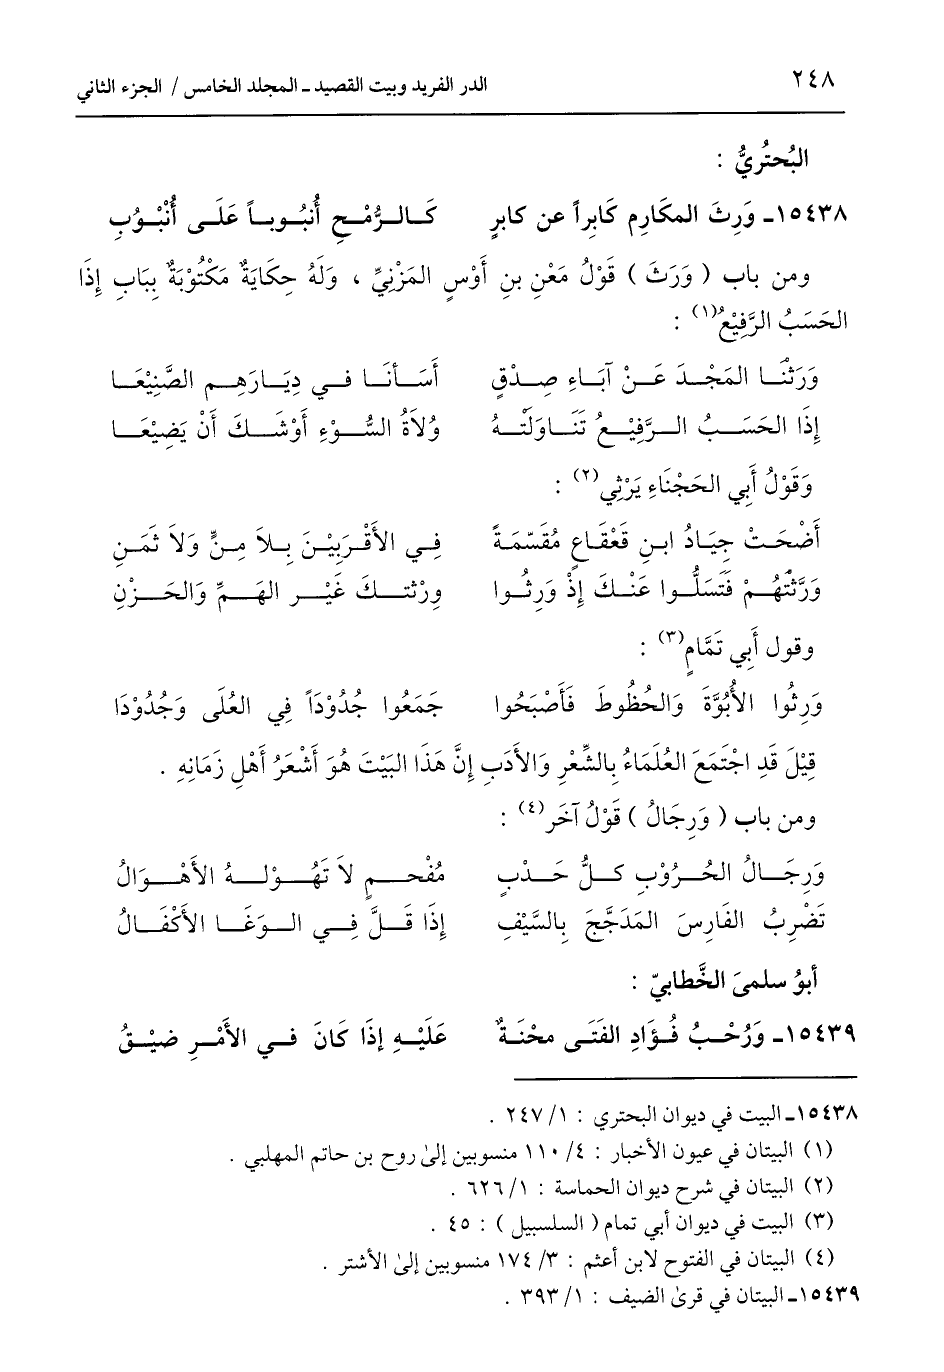 ٢٤٨ الدر الفريد وبيت القصيد ـ المجلد الخامس / الجزء الثاني
البُحتُريُّ :
١٥٤٣٨ـ وَرِثَ المكَارِم كَابِراً عن كابرٍ كَالرُّمْحِ أُنبُوباً عَلَى أُنْبُوْبِ
ومن باب ( وَرَثَ ) قَوْلُ مَعْنِ بنِ أَوْسٍ المَزْنِيِّ ، وَلَهُ حِكَايَةٌ مَكْتُوْبَةٌ بِبَابِ إِذَا
الحَسَبُ الرَّفِيْعُ(١) :
وَرَثْنَا المَجْدَ عَنْ آبَاءِ صِدْقٍ أَسَأنَا في دِيَارَهِم الصَّنِيْعَا
إِذَا الحَسَبُ الرَّفِيْعُ تَنَاوَلَتْهُ وُلاَةُ السُّوْءِ أَوْشَكَ أَنْ يَضِيْعَا
وَقَوْلُ أَبِي الحَجْنَاءِ يَرْثِي(٢) :
أَضْحَتْ جِيَادُ ابنِ قَعْقَاعٍ مُقَسّمَةً فِي الأَقْرَبِيْنَ بِلاَ مِنٍّ وَلاَ ثَمَنِ
وَرَّثْتَهُمْ فَتَسَلَّوا عَنْكَ إِذْ وَرِثُوا ورْثتكَ غَيْر الهَمِّ وَالحَزْنِ
وقول أَبِي تَمَّامٍ(٣) :
وَرِثُوا الأُبُوَّةَ وَالحُظُوظَ فَأَصْبَحُوا جَمَعُوا جُدُوْدَاً فِي العُلَى وَجُدُوْدَا
قِيْلَ قَدِ اجْتَمَعَ العُلَمَاءُ بِالشِّعْرِ وَالأَدَبِ إِنَّ هَذَا البَيْتَ هُوَ أَشْعَرُ أَهْلِ زَمَانِهِ .
ومن باب ( وَرِجَالُ ) قَوْلُ آخَر(٤) :
وَرِجَالُ الحُرُوْبِ كلُّ خَدْبٍ مُقْحمٍ لاَ تَهُوْلهُ الأَهْوَالُ
تَضْرِبُ الفَارِسَ المَدَجَّجَ بِالسَّيْفِ إِذَا قَلَّ فِي الوَغَا الأَكْفَالُ
أبوُ سلمىَ الخَّطابيّ :
١٥٤٣٩ـ وَرُحْبُ فُؤَادِ الفَتَى محْنَةٌ عَلَيْهِ إِذَا كَانَ في الأَمْرِ ضيْقُ
١٥٤٣٨ـ البيت في ديوان البحتري : ١/ ٢٤٧ .
(١) البيتان في عيون الأخبار : ٤/ ١١٠ منسوبين إلىٰ روح بن حاتم المهلبي .
(٢) البيتان في شرح ديوان الحماسة : ١/ ٦٢٦ .
(٣) البيت في ديوان أبي تمام ( السلسبيل ) : ٤٥ .
(٤) البيتان في الفتوح لابن أعثم : ٣/ ١٧٤ منسوبين إلىٰ الأشتر .
١٥٤٣٩ـ البيتان في قرىٰ الضيف : ١/ ٣٩٣ .